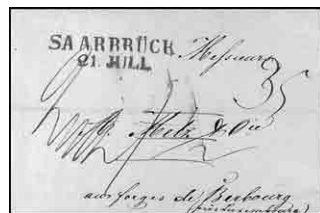 SAARBRÜCK
21. JULI.
Messieurs
35
Metz & Cie
aux forges de Berbourg